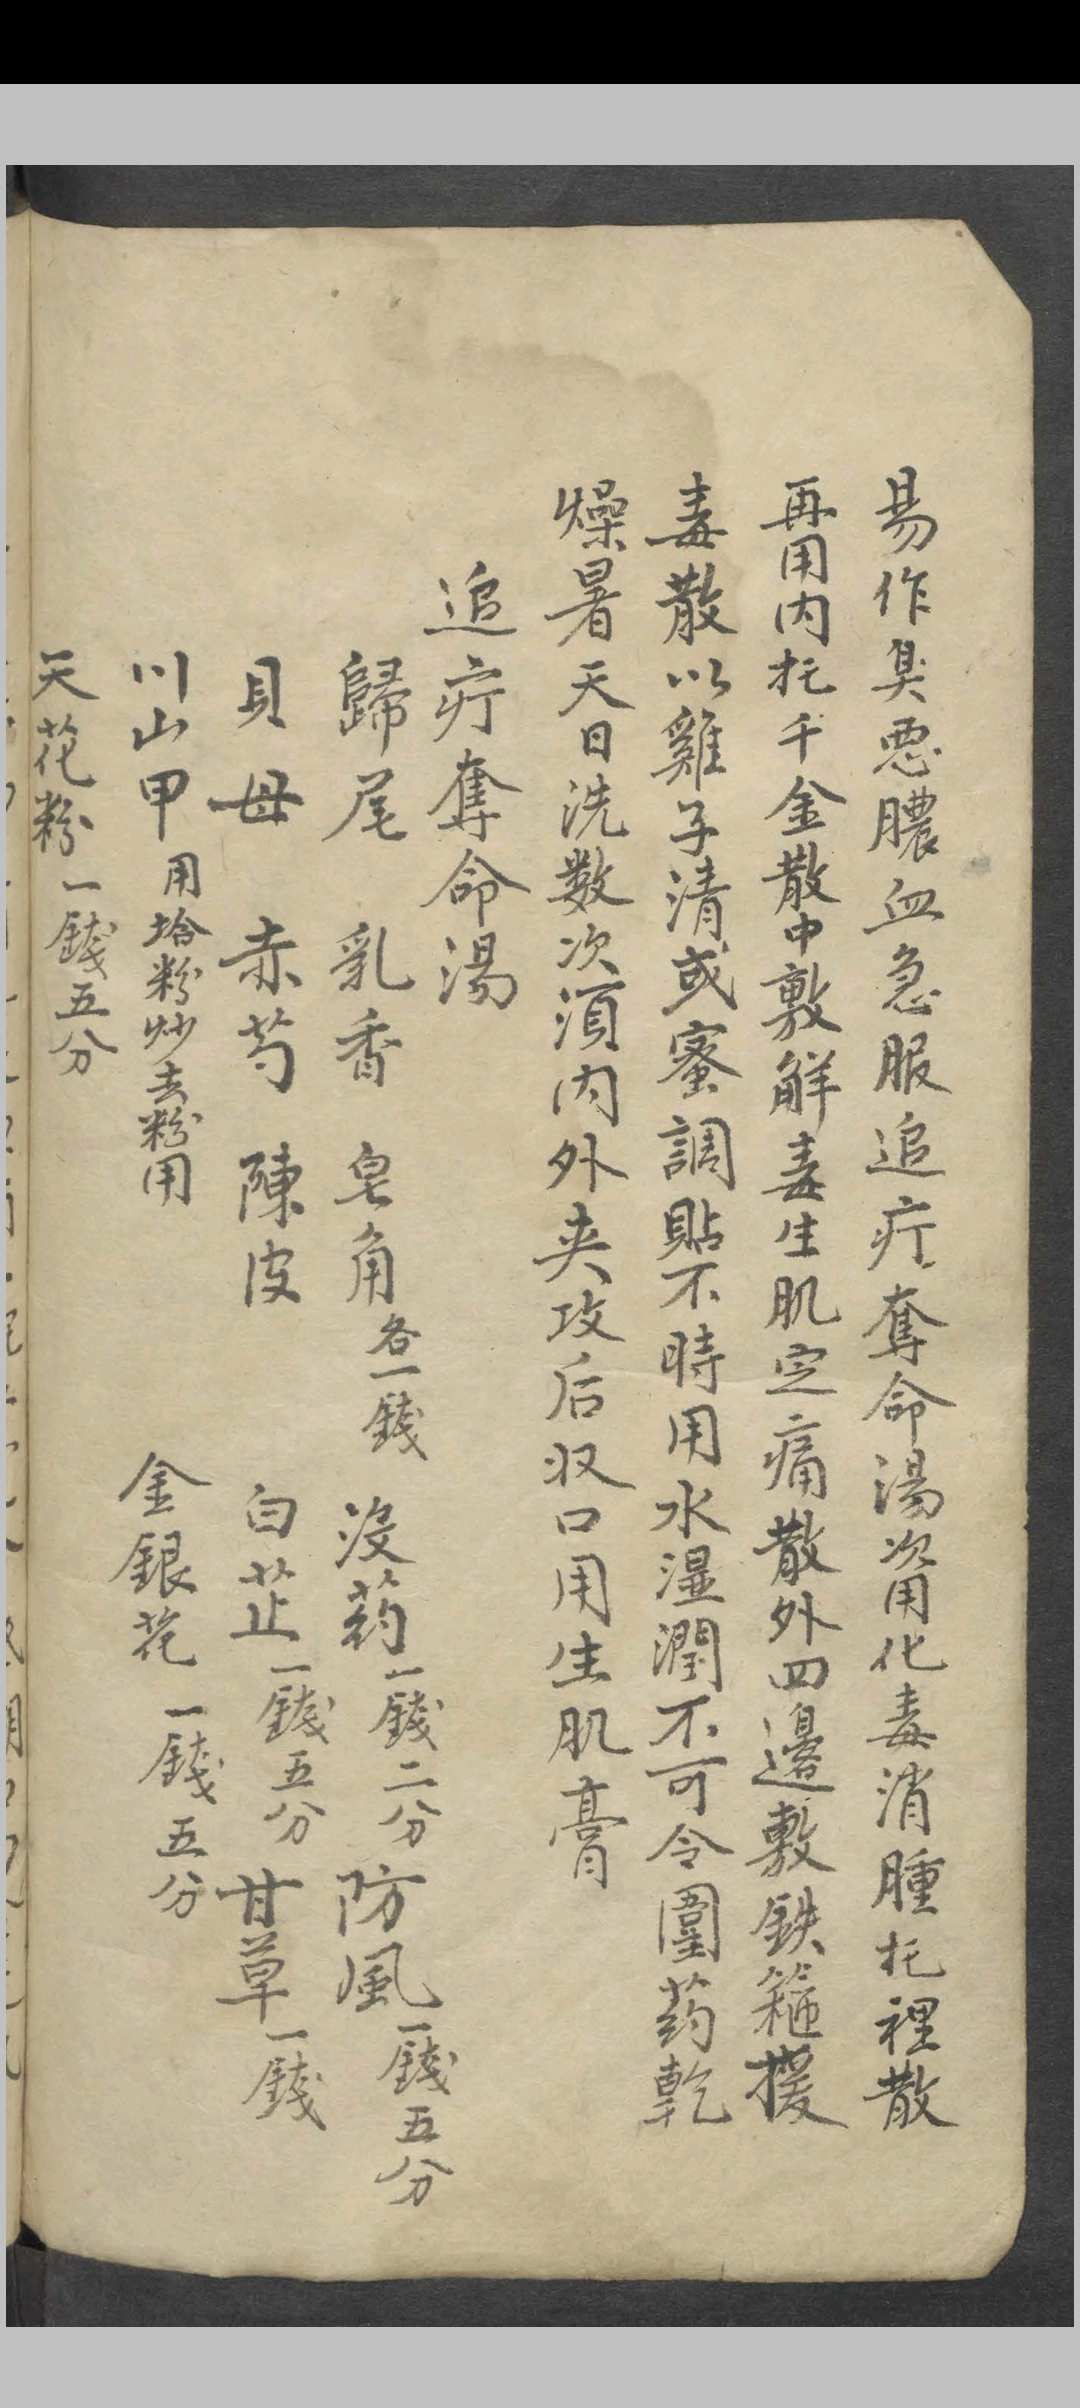 易作臭恶膿血急服追疔奪命湯次用化毒消腫托裡散
再用内托千金散中敷解毒生肌定痛散外四邊敷鉄箍援
毒散以雞子清或蜜調貼不時用水湿潤不可令圍药乾
燥暑天日洗数次須内外夹攻后収口用生肌膏
追疔奪命湯
歸尾 乳香 皂角各一錢 没药一錢二分 防風一錢五分
貝母 赤芍 陳皮 白芷一錢五分 甘草一錢
川山甲用蛤粉炒去粉用 金銀花一錢五分
天花粉一錢五分